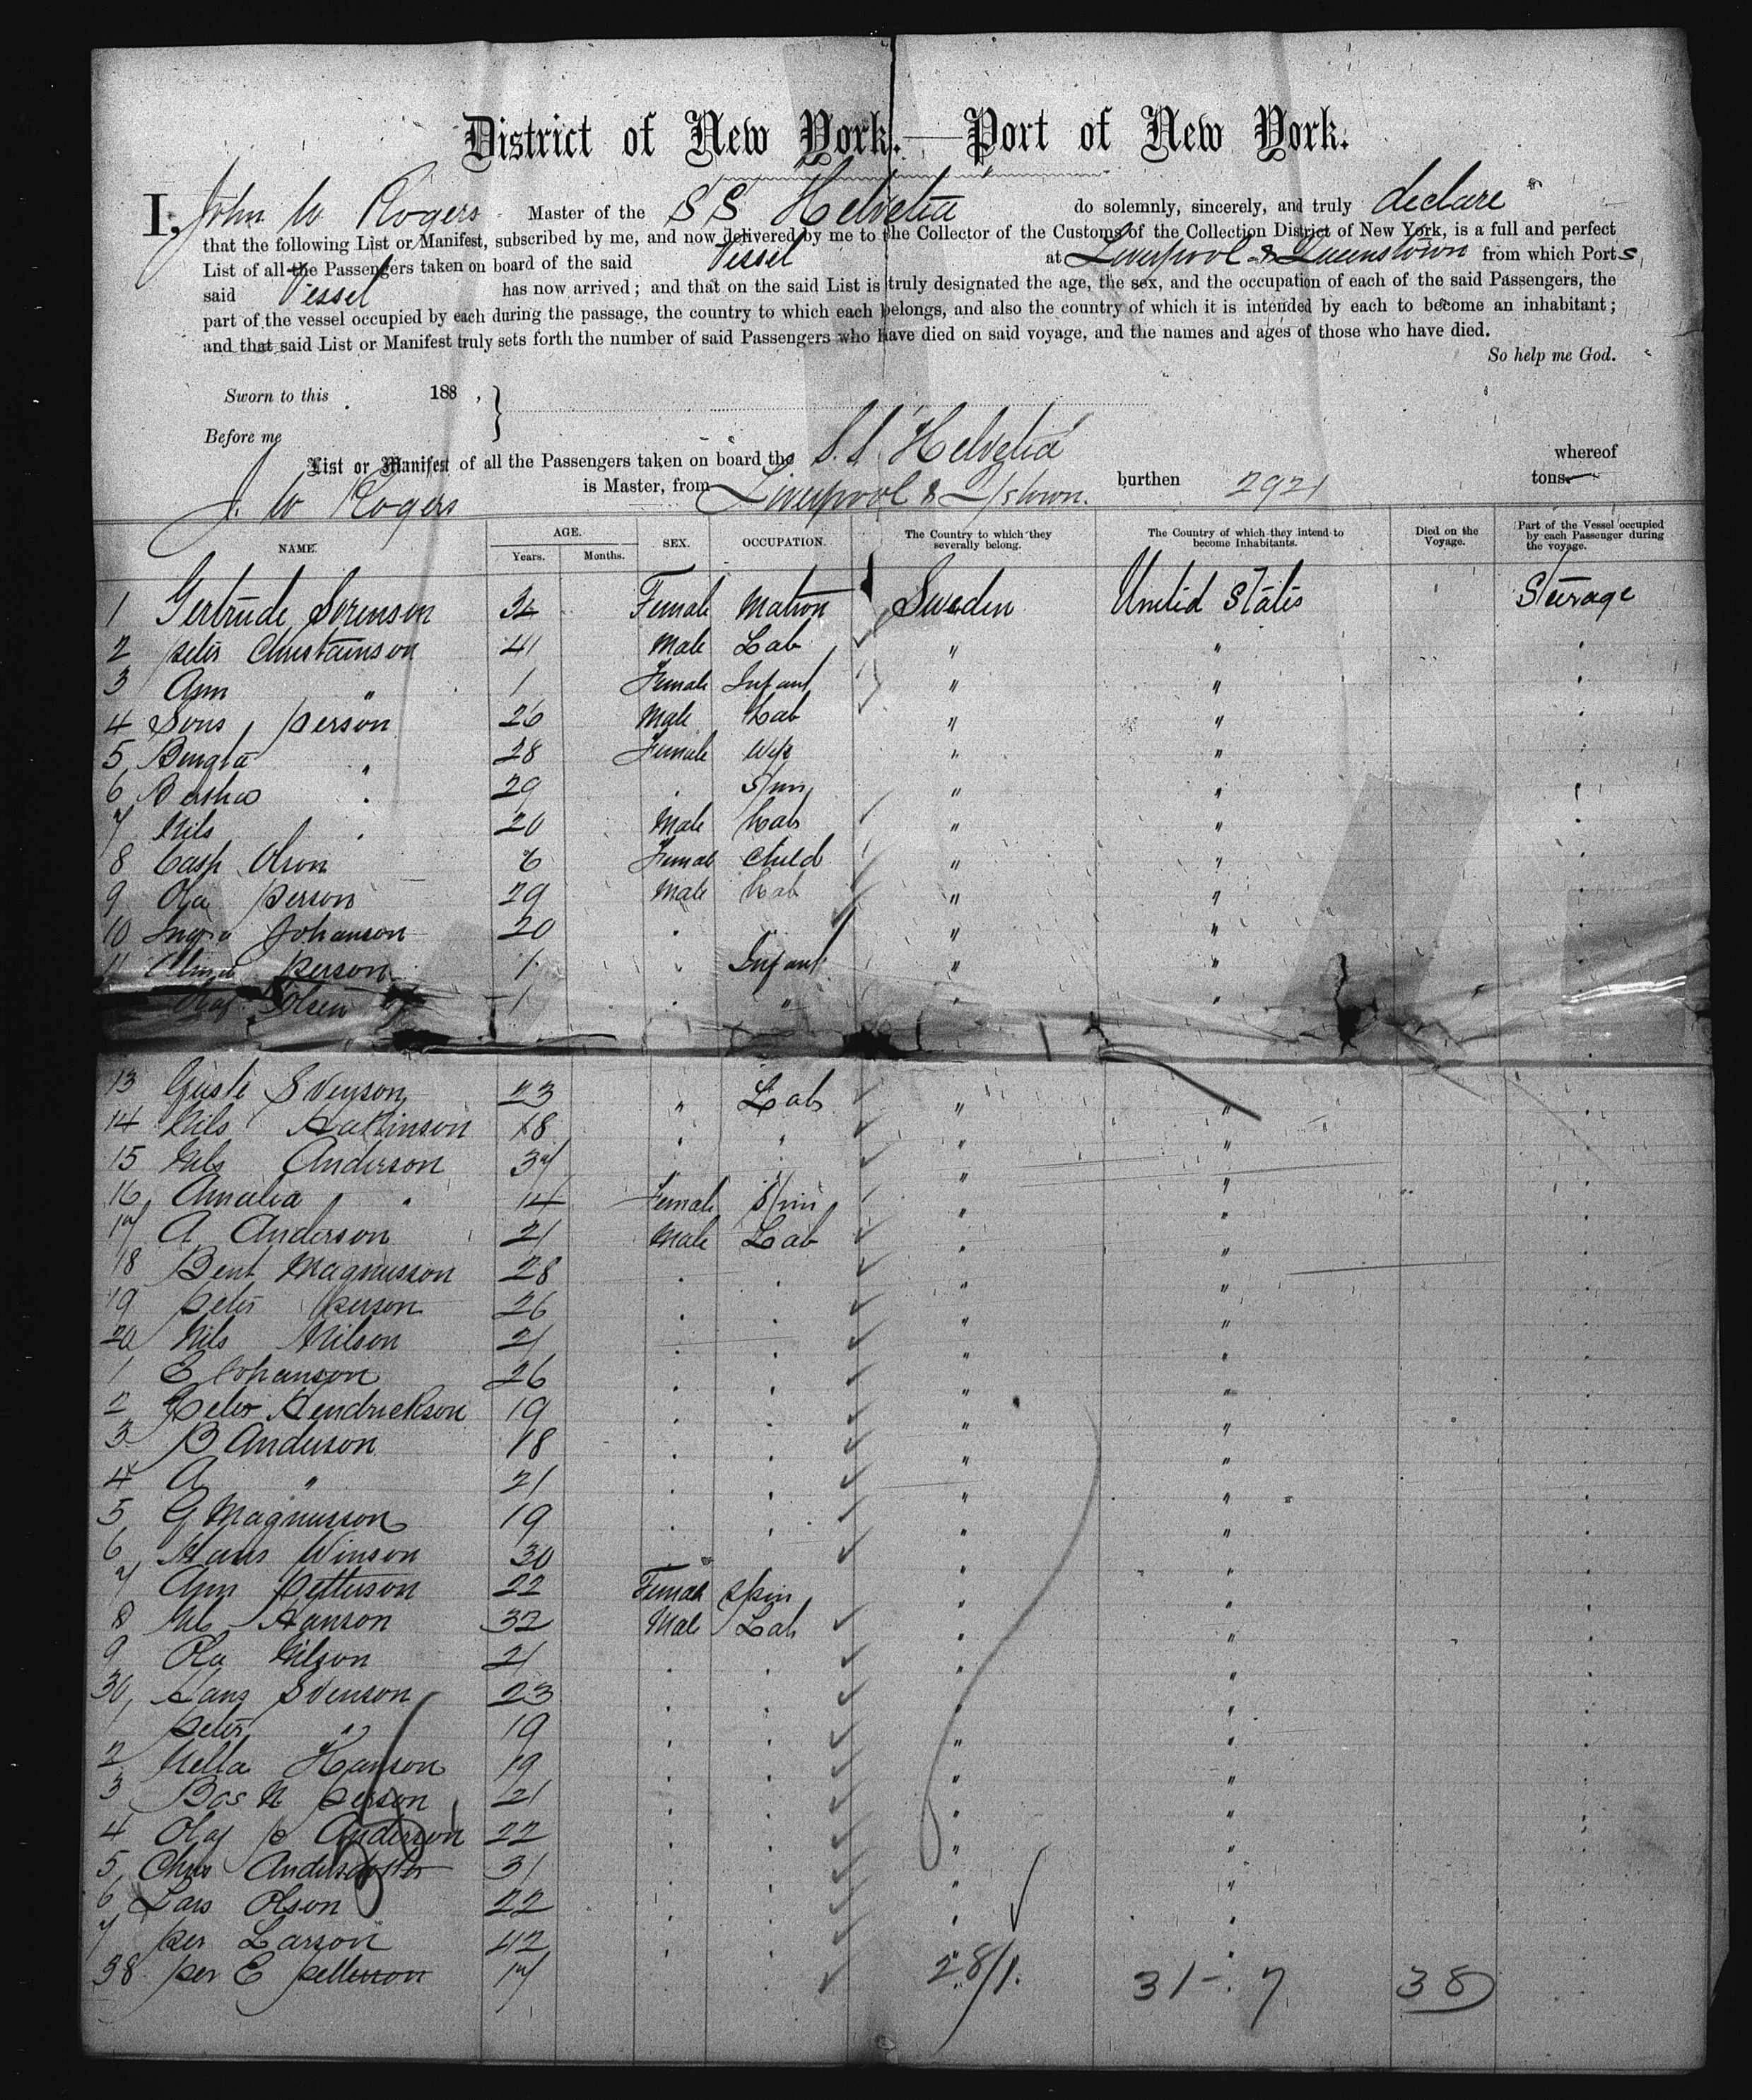 District of New York.—Port of New York.
I, John W Rogers Master of the SS Helvetia do solemnly, sincerely, and truly declare
that the following List or Manifest, subscribed by me, and now delivered by me to the Collector of the Customs of the Collection District of New York, is a full and perfect
List of all the Passengers taken on board of the said Vessel at Liverpool & Queenstown from which Ports,
said Vessel has now arrived; and that on the said List is truly designated the age, the sex, and the occupation of each of the said Passengers, the
part of the vessel occupied by each during the passage, the country to which each belongs, and also the country of which it is intended by each to become an inhabitant;
and that said List or Manifest truly sets forth the number of said Passengers who have died on said voyage, and the names and ages of those who have died.
So help me God.
Sworn to this 188 ,
Before me
List or Manifest of all the Passengers taken on board the S.S. Helvetia whereof
J. W Rogers is Master, from Liverpool & Q/stown. burthen 2921 tons.
NAME. AGE. Years. Months. SEX. OCCUPATION. The Country to which they severally belong. The Country of which they intend to become Inhabitants. Died on the Voyage. Part of the Vessel occupied by each Passenger during the voyage.
1 Gertrude Sorenson 32 Female Matron Sweden United States Steerage
2 Peter Christainson 41 Male Lab " "
3 Ann " 1 Female Infant " "
4 Person 26 Male Lab " "
5 Bengta " 28 Female Wife " "
6 29 " Spin " "
7 Nils " 20 Male Lab " "
8 Olson 6 Female Child " "
9 Ola Person 29 Male Lab " "
10 Johanson 20 " " " "
11 Person 1 " Infant " "
Olaf Olsen 1 " " " "
13 Svenson 23 " Lab " "
14 Nils 18 " " " "
15 Nils Anderson 37 " " " "
16 Amalia " 14 Female Spin " "
17 A Anderson 21 Male Lab " "
18 Bent Magnusson 28 " " " "
19 Peter Person 26 " " " "
20 Nils Nilson 21 " " " "
1 E Johanson 26 " " " "
2 Peter Hendrickson 19 " " " "
3 B Anderson 18 " " " "
4 A " 21 " " " "
5 G Magnusson 19 " " " "
6 Hans Winson 30 " " " "
7 Ann Petterson 22 Female Spin " "
8 Nils Hanson 32 Male Lab " "
9 Ola Nilson 21 " " " "
30 Hans Svenson 23 " " " "
1 Peter " 19 " " " "
2 Nella Hanson 19 " " " "
3 Person 21 " " " "
4 Olaf P Anderson 22 " " " "
5 Chris 31 " " " "
6 Lars Olson 22 " " " "
7 Per Larson 42 " " " "
38 Per E Petterson 17 28/1. 31-.7 38